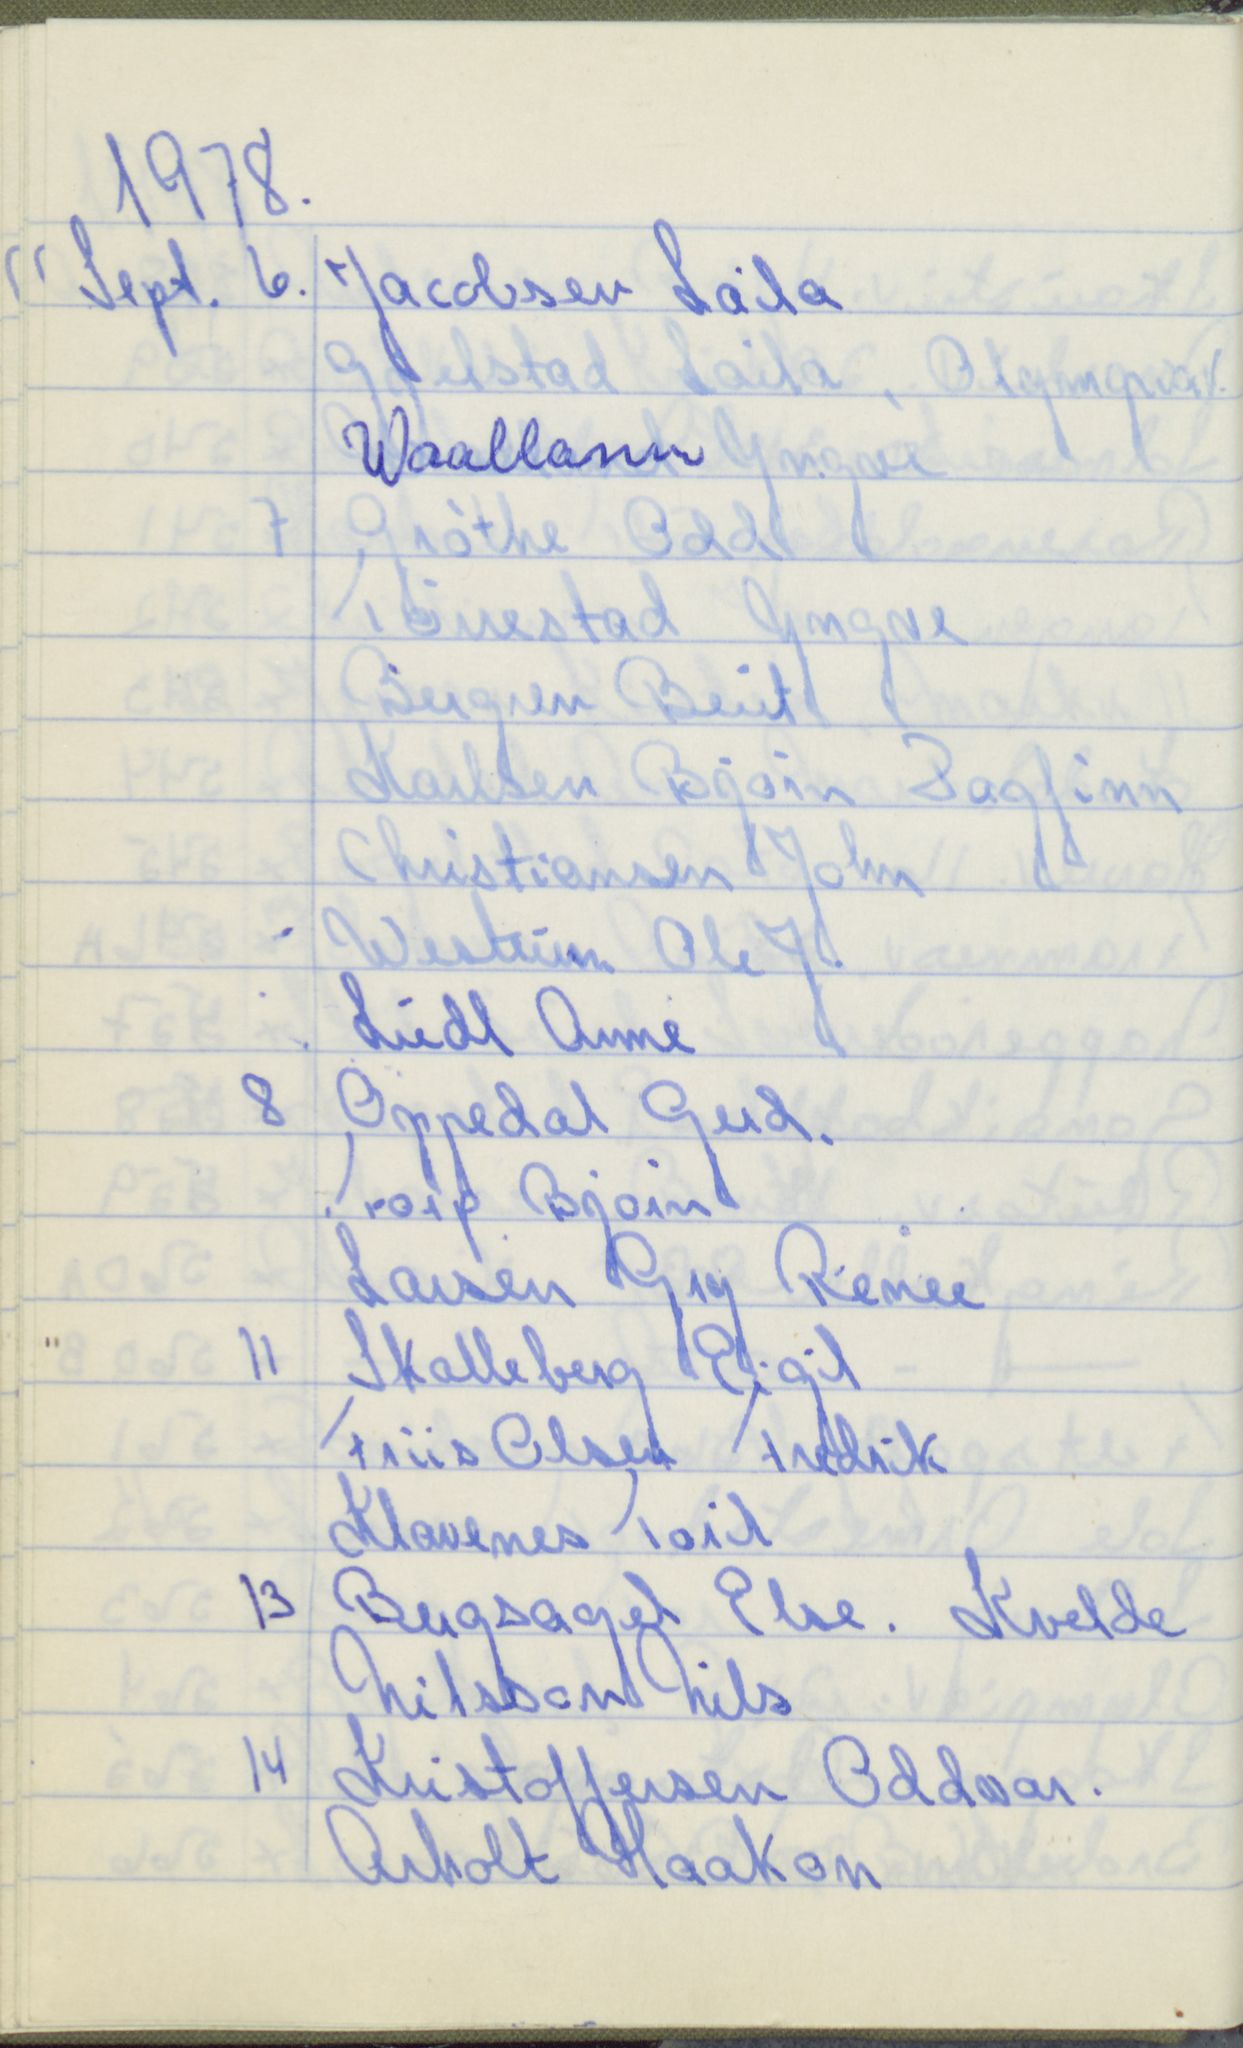 1978.
" Sept. 6. Jacobsen Laila
Gjelstad Laila, Olympiav.
Waallann Yngve
7 Gróthe Odd
Torrestad Yngve
Bergren Berit
Karlsen Bjørn Dagfinn
Christiansen John
Westrum Ole J.
Liedl Anne
8 Oppedal Gerd.
Torp Bjørn
Larsen Gry Renee
" 11 Skalleberg Eigil
Friis Olsen Fredrik
Klavenes Toril
13 Bergsagel Else. Kvelde
Nilsson Nils
14 Kristoffersen Oddvar.
Arholt Haakon